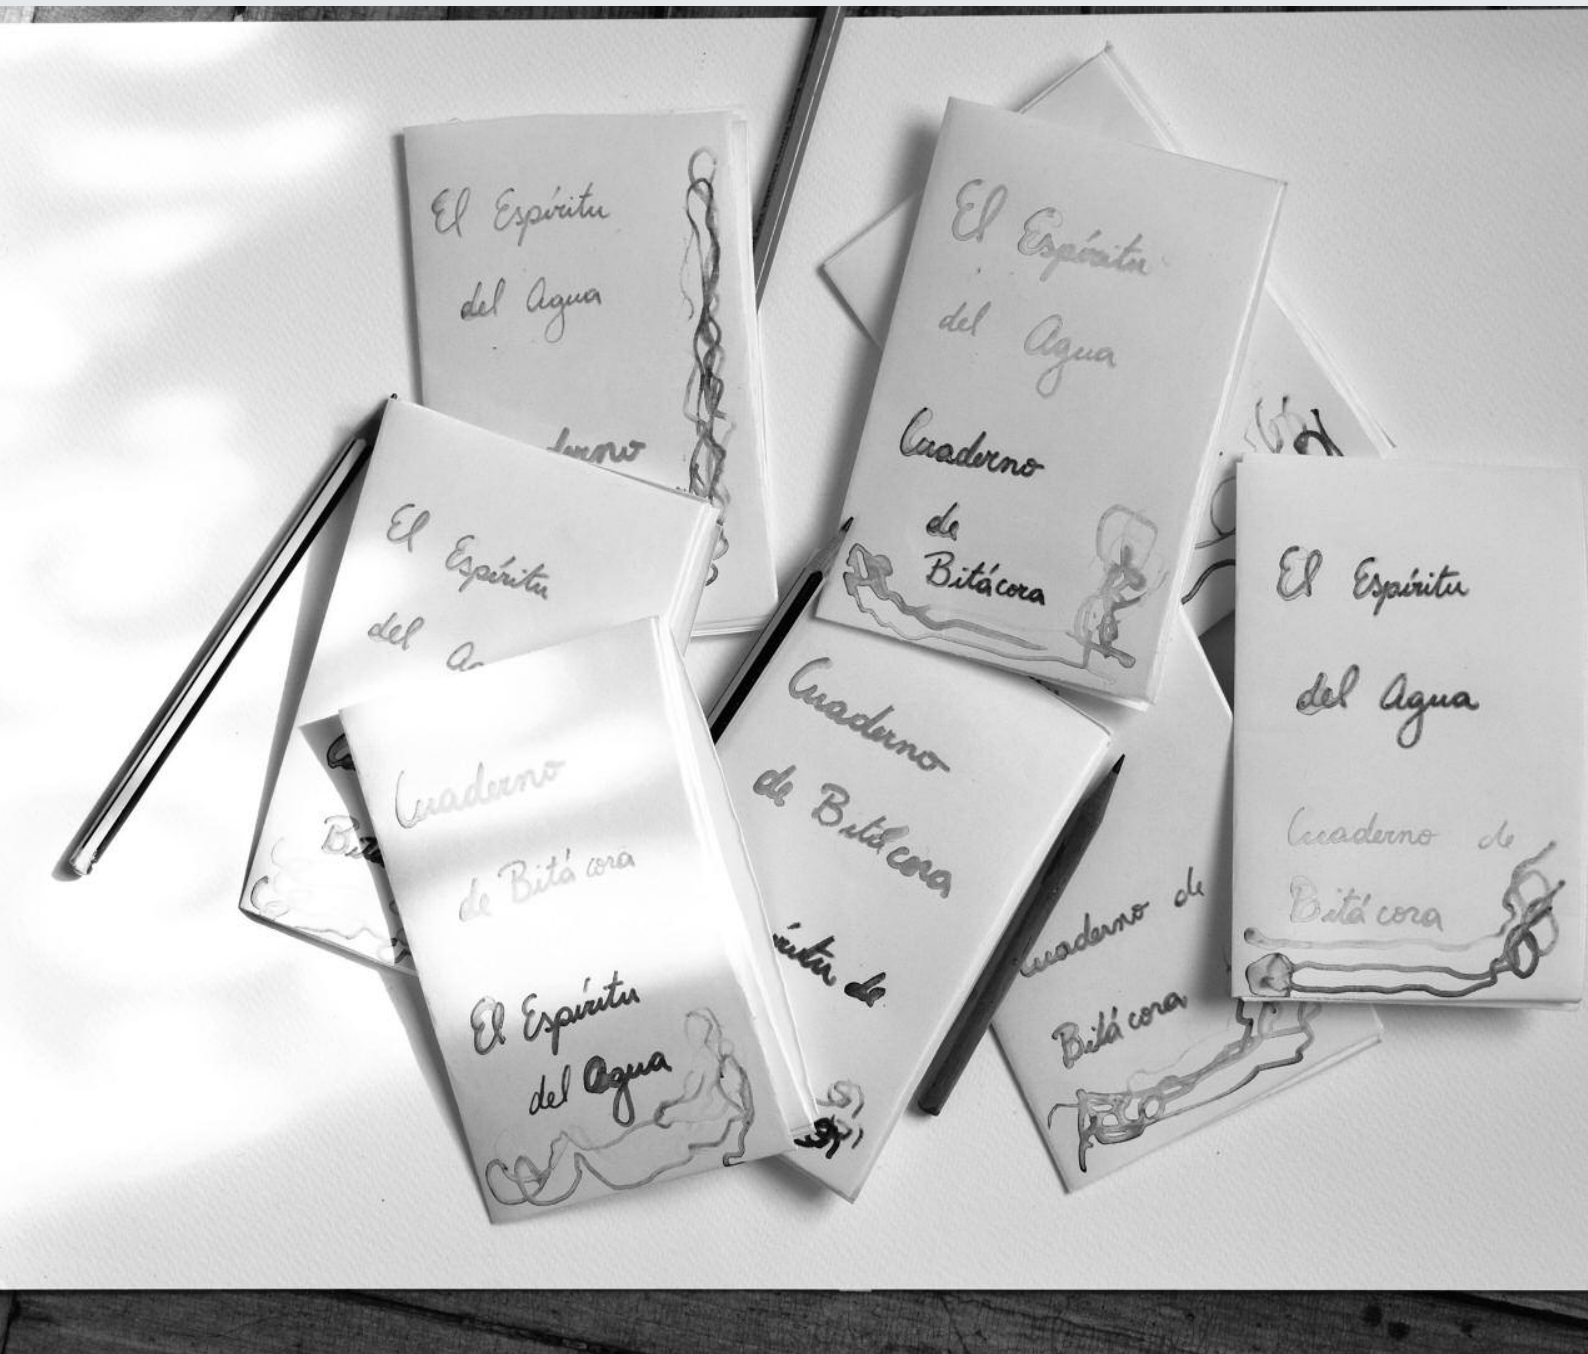 El Espíritu
del Agua
El Espíritu
del Agua
Cuaderno
de
Bitácora
El Espíritu
del
Cuaderno
de Bitácora
El Espíritu
del Agua
Cuaderno
de Bitácora
de
Cuaderno de
Bitácora
El Espíritu
del Agua
Cuaderno de
Bitácora